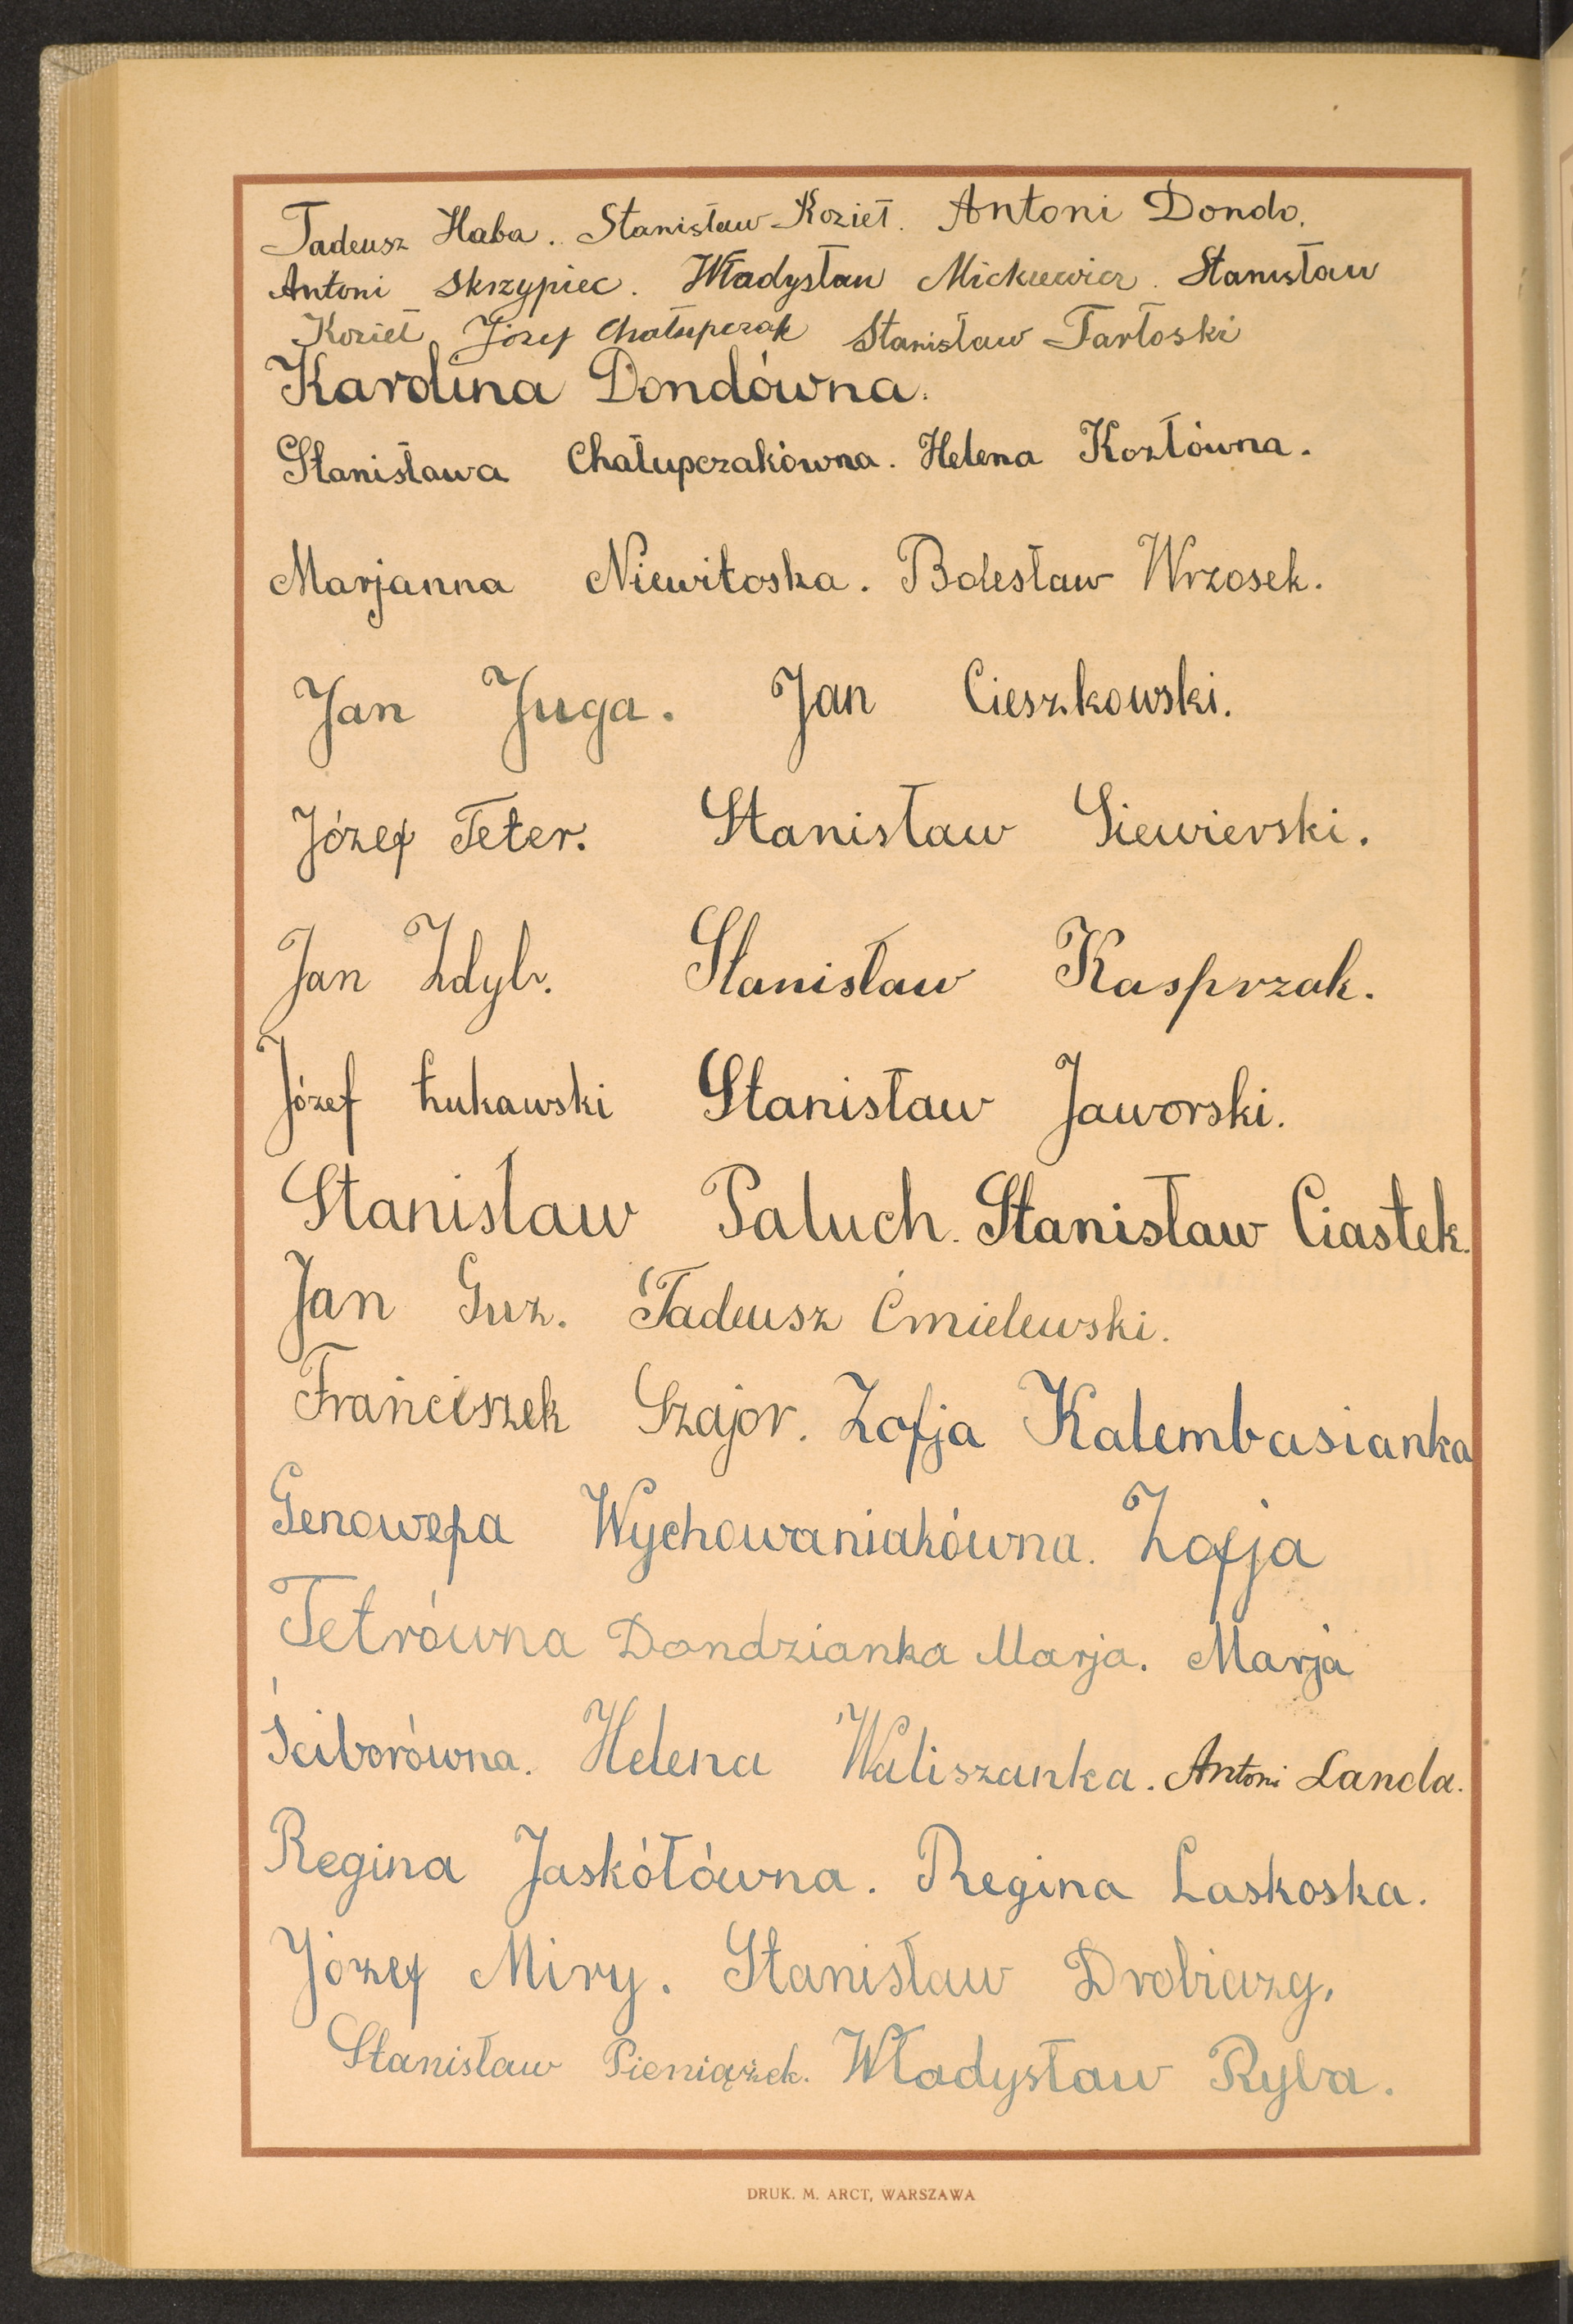 Tadeusz Haba. Stanisław Kozieł. Antoni Dondo.
Antoni Skrzypiec. Władysław Mickiewicz. Stanisław
Kozieł Józef Chałupczak Stanisław Tarłoski
Karolina Dondówna.
Stanisława Chałupczakówna. Helena Kozłówna.
Marjanna Niewitoska. Bolesław Wrzosek.
Jan Juga. Jan Cieszkowski.
Józef Teter. Stanisław Siewierski.
Jan Zdyb. Stanisław Kasprzak.
Józef Łukawski Stanisław Jaworski.
Stanisław Paluch. Stanisław Ciastek.
Jan Guz. Tadeusz Ćmielewski.
Franciszek Szajor. Zofja Kalembasianka
Genowefa Wychowaniakówna. Zofja
Tetrówna Dondzianka Marja. Marja
Ściborówna. Helena Waliszanka. Antoni Landa.
Regina Jaskółówna. Regina Laskoska.
Józef Miry. Stanisław Drobiazg.
Stanisław Pieniążek. Władysław Ryba.
DRUK. M. ARCT, WARSZAWA